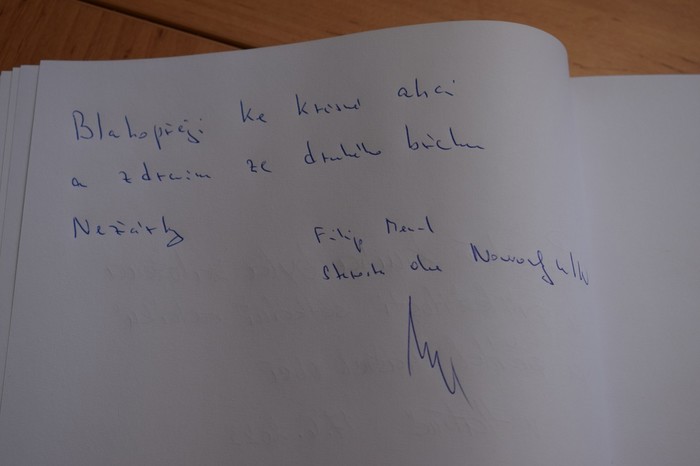 Blahopřeji ke krásné akci
a zdravím ze druhého břehu
Nežárky
Filip
starosta obce